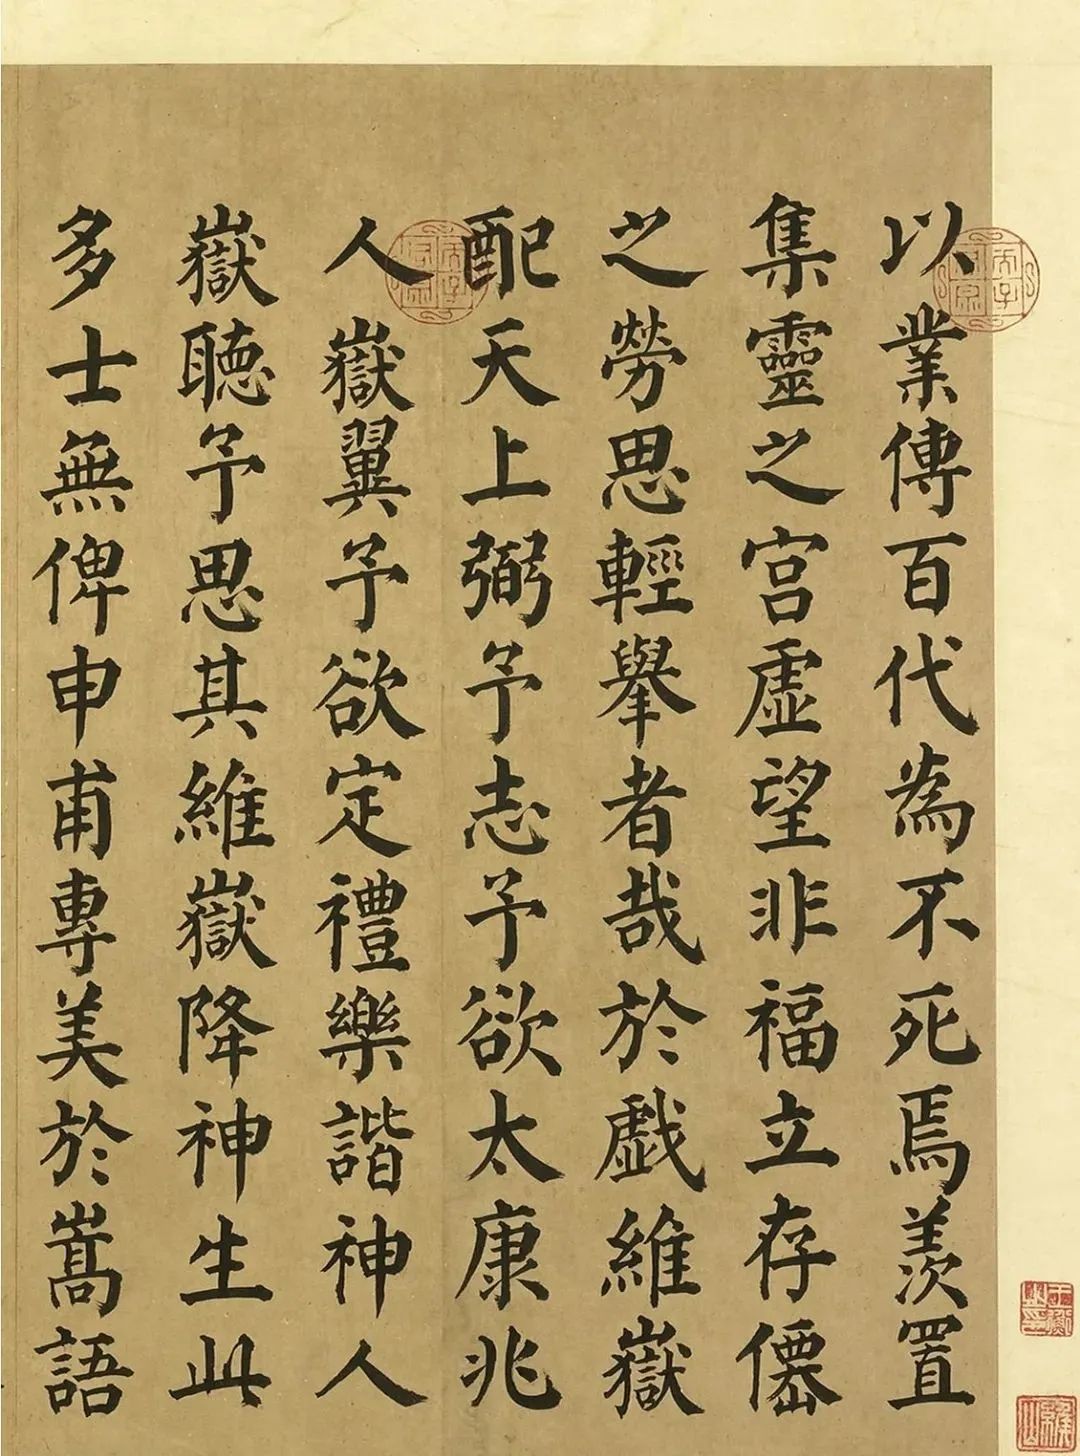 以業傳百代為不死焉羨置
集靈之宮虛望非福立存僊
之勞思輕舉者哉於戲維嶽
配天上弼予志予欲太康兆
人嶽翼予予欲定禮樂諧神人
嶽聽予思其維嶽降神生此
多士無俾申甫專美於嵩語